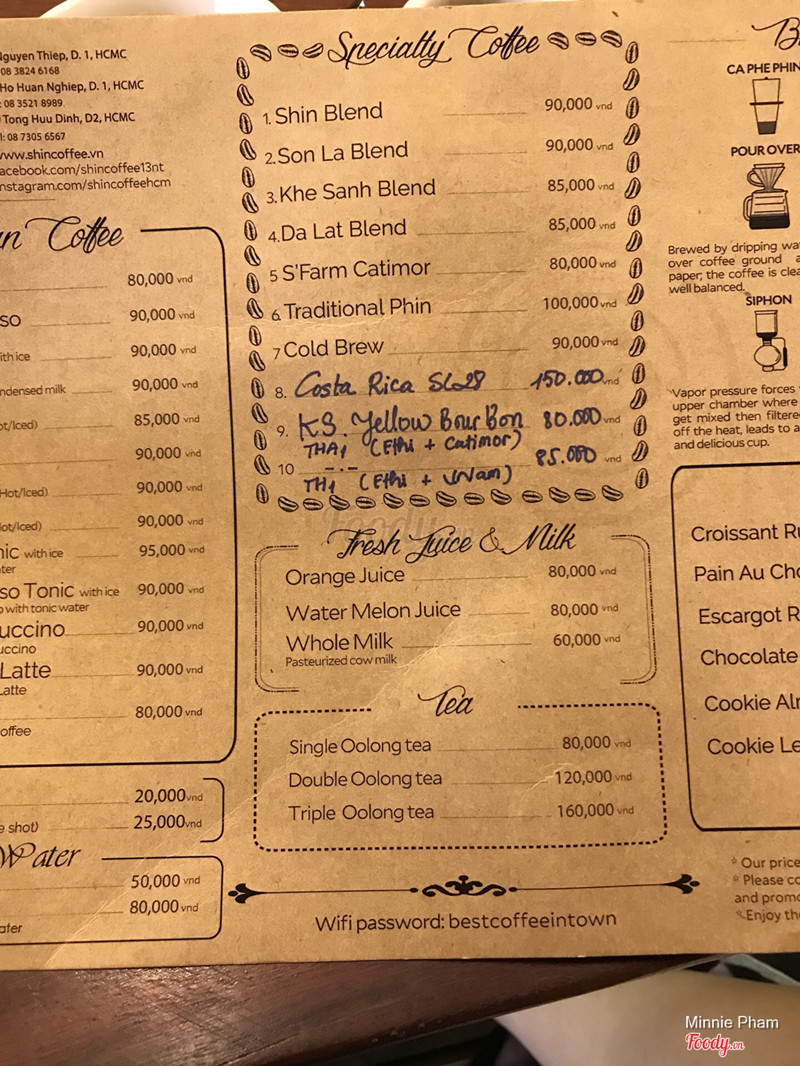 Nguyen Thiep, D. 1, HCMC
08 3824 6168
Ho Huan Nghiep, D. 1, HCMC
: 08 3521 8989
Tong Huu Dinh, D2, HCMC
l: 08 7305 6567
www.shincoffee.vn
facebook.com/shincoffee13nt
instagram.com/shincoffeehcm
Coffee
80,000 vnd
so 90,000 vnd
with ice 90,000 vnd
ndensed milk 90,000 vnd
ot/Iced) 85,000 vnd
90,000 vnd
Hot/Iced) 90,000 vnd
ot/Iced) 90,000 vnd
nic with ice 95,000 vnd
ter
so Tonic with ice 90,000 vnd
o with tonic water
uccino 90,000 vnd
uccino
Latte 90,000 vnd
Latte
80,000 vnd
offee
20,000 vnd
e shot) 25,000 vnd
Water
50,000 vnd
80,000 vnd
ater
Specialty Coffee
1. Shin Blend 90,000 vnd
2. Son La Blend 90,000 vnd
3. Khe Sanh Blend 85,000 vnd
4. Da Lat Blend 85,000 vnd
5 S'Farm Catimor 80,000 vnd
6. Traditional Phin 100,000 vnd
7 Cold Brew 90,000 vnd
8. Costa Rica SL28 150.000 vnd
9. KS. Yellow Bourbon 80.000 vnd
THA1 (Ethi + Catimor)
10 -.- 85.000 vnd
TH1 (Ethi + VNam)
Fresh Juice & Milk
Orange Juice 80,000 vnd
Water Melon Juice 80,000 vnd
Whole Milk 60,000 vnd
Pasteurized cow milk
Tea
Single Oolong tea 80,000 vnd
Double Oolong tea 120,000 vnd
Triple Oolong tea 160,000 vnd
Wifi password: bestcoffeeintown
CA PHE PHIN
POUR OVER
Brewed by dripping wa
over coffee ground a
paper; the coffee is clea
well balanced.
SIPHON
Vapor pressure forces
upper chamber where
get mixed then filtere
off the heat, leads to a
and delicious cup.
Croissant R
Pain Au Cho
Escargot R
Chocolate
Cookie Al
Cookie Le
* Our price
* Please co
and promo
*Enjoy th
Minnie Pham
Foody.vn